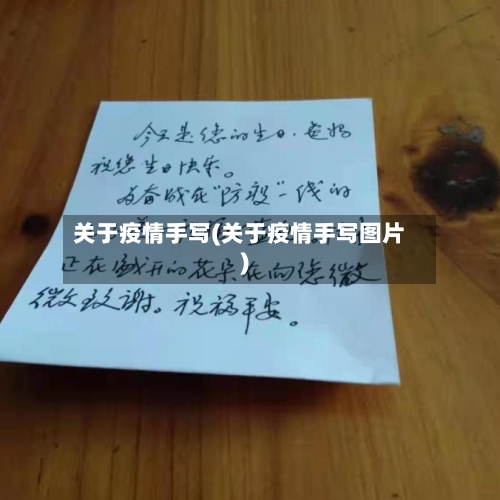 今天是您的生日，爸妈
祝您生日快乐。
为奋战在“防疫”一线的
关于疫情手写(关于疫情手写图片
)
正在盛开的花朵在向您微笑
微笑致谢。祝福平安。